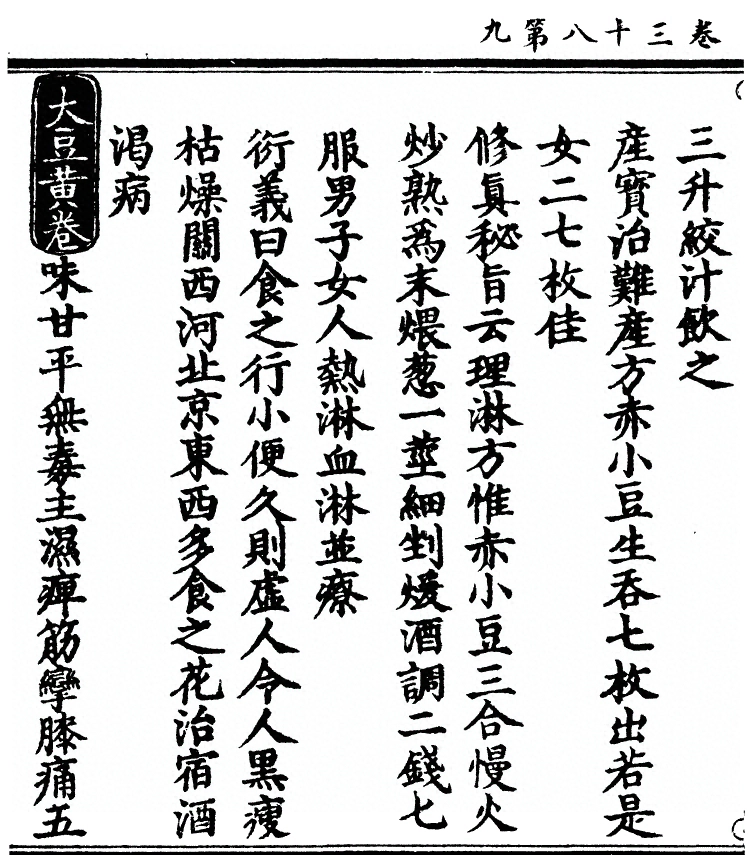 卷三十八第九
三升絞汁飲之
產寶治難產方赤小豆生吞七枚出若是
女二七枚佳
修眞秘旨云理淋方惟赤小豆三合慢火
炒熟爲末煨葱一莖細剉煖酒調二錢七
服男子女人熱淋血淋並療
衍義曰食之行小便久則虛人令人黑瘦
枯燥關西河北京東西多食之花治宿酒
渴病
大豆黃卷味甘平無毒主濕痺筋攣膝痛五